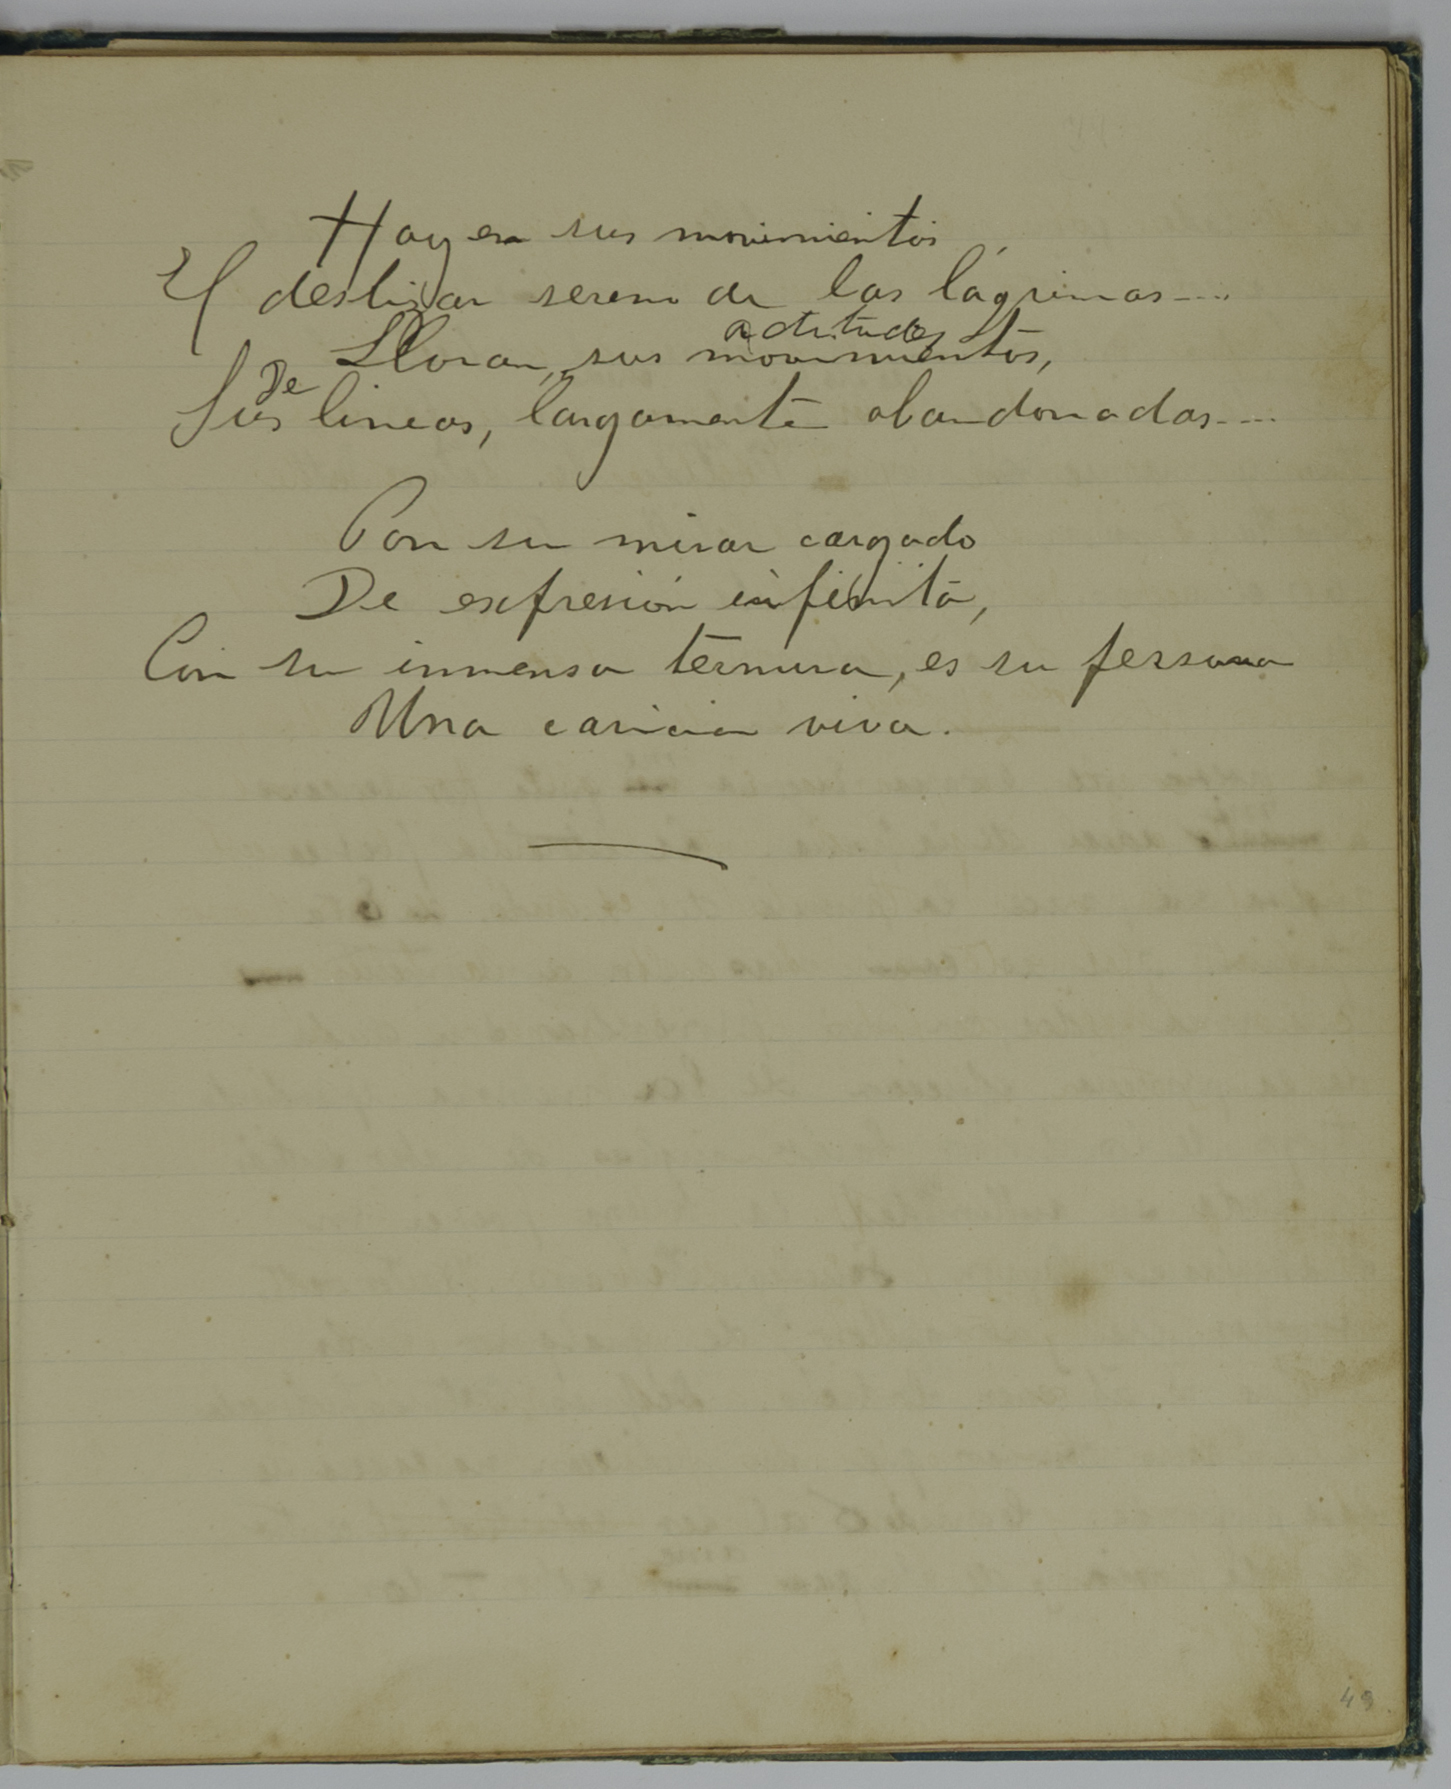 Hay en sus movimientos
El deslizar sereno de las lágrimas....
actitudes
Lloran, sus movimientos,
De
Sus lineas, largamente abandonadas....
Con su mirar cargado
De expresión infinita,
Con su inmensa ternura, es su persona
Una caricia viva.
49